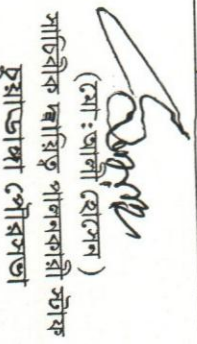 (মোঃ আলী হোসেন)
সার্বিক দায়িত্ব পালনকারী স্টাফ
চুয়াডাঙ্গা পৌরসভা